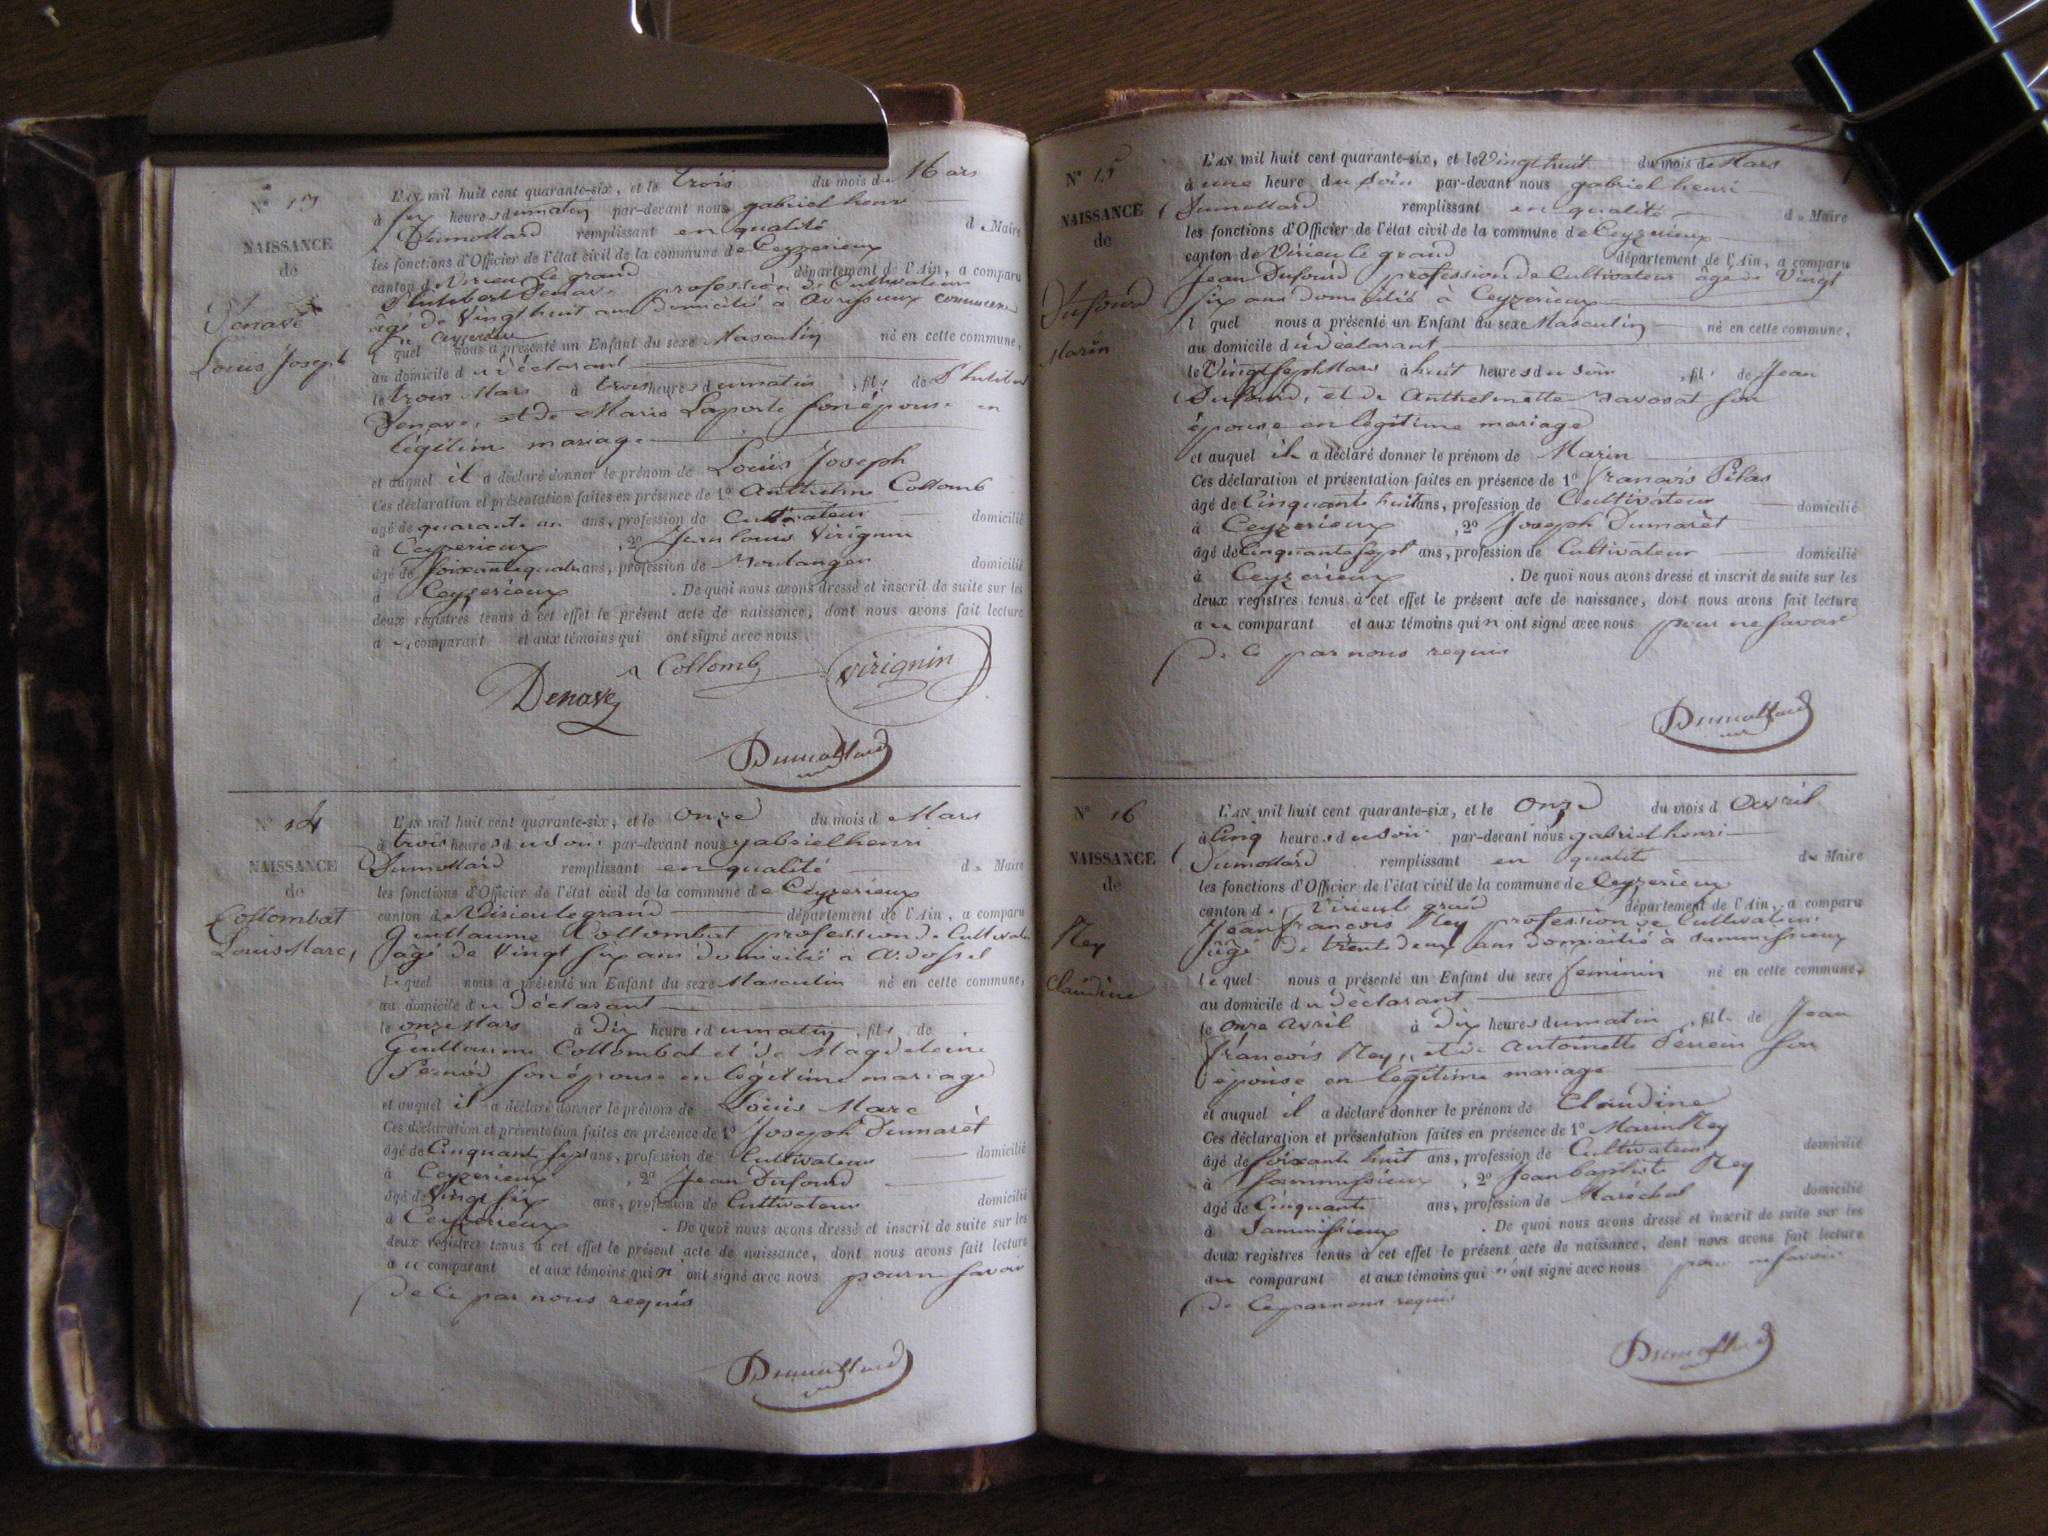 N° 13
NAISSANCE
de
Denave
Louis Joseph
L'AN mil huit cent quarante-six, et le trois du mois de Mars
à six heures du matin par-devant nous gabriel henri
Dumollard remplissant en qualité de Maire
les fonctions d'Officier de l'état civil de la commune de Ceyzerieux
canton de Virieu le grand département de l'Ain, a comparu
Philibert Denave profession de Cultivateur
âgé de Vingt huit ans domicilié a avrissieux commune
de Ceyzerieux
l quel nous a présenté un Enfant du sexe Masculin né en cette commune,
au domicile du déclarant
le trois Mars à trois heures du matin, fils de Philibert
Denave, et de Marie Laporte son épouse en
légitime mariage
et auquel il a déclaré donner le prénom de Louis Joseph
Ces déclaration et présentation faites en présence de 1° Anthelme Collomb
âgé de quarante un ans, profession de Cultivateur domicilié
à Ceyzerieux, 2° Jean louis Virignin
âgé de soixante quatre ans, profession de Boulanger domicilié
à Ceyzerieux. De quoi nous avons dressé et inscrit de suite sur les
deux registres tenus à cet effet le présent acte de naissance, dont nous avons fait lecture
au comparant et aux témoins qui ont signé avec nous
Collomb virignin
Denave
Dumollard
N° 14
NAISSANCE
de
Collombat
Louis Marc,
L'AN mil huit cent quarante-six, et le onze du mois d Mars
à trois heures du soir par-devant nous gabriel henri
Dumollard remplissant en qualité de Maire
les fonctions d'Officier de l'état civil de la commune de Ceyzerieux
canton de Virieu le grand département de l'Ain, a comparu
Guillaume Collombat profession de Cultivateur
âgé de Vingt six ans domicilié a Ardossel
lequel nous a présenté un Enfant du sexe Masculin né en cette commune,
au domicile du déclarant
le onze Mars à Dix heures du matin, fils de
Guillaume Collombat et de Magdeleine
Pernod son épouse en légitime mariage
et auquel il a déclaré donner le prénom de Louis Marc
Ces déclaration et présentation faites en présence de 1° Joseph Dumarèt
âgé de Cinquante sept ans, profession de Cultivateur domicilié
à Ceyzerieux, 2° Jean Dufourd
âgé de Vingt six ans, profession de Cultivateur domicilié
à Ceyzerieux. De quoi nous avons dressé et inscrit de suite sur les
deux registres tenus à cet effet le présent acte de naissance, dont nous avons fait lecture
au comparant et aux témoins qui n'ont signé avec nous pour ne savoir
de ce par nous requis
Dumollard
N° 15
NAISSANCE
de
Dufourd
Marin
L'AN mil huit cent quarante-six, et le Vingt huit du mois de Mars
à une heure du soir par-devant nous gabriel henri
Dumollard remplissant en qualité de Maire
les fonctions d'Officier de l'état civil de la commune de Ceyzerieux
canton de Virieu le grand département de l'Ain, a comparu
Jean Dufourd profession de Cultivateur âgé de Vingt
six ans domicilié à Ceyzerieux
l quel nous a présenté un Enfant du sexe Masculin né en cette commune,
au domicile du déclarant
le Vingt sept Mars à huit heures du soir, fils de Jean
Dufourd, et de Anthelmette Savorat son
épouse en légitime mariage
et auquel il a déclaré donner le prénom de Marin
Ces déclaration et présentation faites en présence de 1° francois Pilas
âgé de Cinquante huit ans, profession de Cultivateur domicilié
à Ceyzerieux, 2° Joseph Dumarèt
âgé de Cinquante sept ans, profession de Cultivateur domicilié
à Ceyzerieux. De quoi nous avons dressé et inscrit de suite sur les
deux registres tenus à cet effet le présent acte de naissance, dont nous avons fait lecture
au comparant et aux témoins qui n'ont signé avec nous pour ne savoir
de ce par nous requis
Dumollard
N° 16
NAISSANCE
de
Rey
Claudine
L'AN mil huit cent quarante-six, et le onze du mois d Avril
à Cinq heures du soir par-devant nous gabriel henri
Dumollard remplissant en qualité de Maire
les fonctions d'Officier de l'état civil de la commune de Ceyzerieux
canton de Virieu le grand département de l'Ain, a comparu
Jean francois Rey profession de Cultivateur
âgé de trente deux ans domicilié à Sammissieux
lequel nous a présenté un Enfant du sexe feminin né en cette commune,
au domicile du déclarant
le onze avril à Dix heures du matin, fille de Jean
francois Rey, et de Antoinette Perrein son
épouse en legitime mariage
et auquel il a déclaré donner le prénom de Claudine
Ces déclaration et présentation faites en présence de 1° Marin Rey
âgé de soixante huit ans, profession de Cultivateur domicilié
à Sammissieux, 2° Jean baptiste Rey
âgé de Cinquante ans, profession de Maréchal domicilié
à Sammissieux. De quoi nous avons dressé et inscrit de suite sur les
deux registres tenus à cet effet le présent acte de naissance, dont nous avons fait lecture
au comparant et aux témoins qui n'ont signé avec nous pour ne savoir
de ce par nous requis
Dumollard